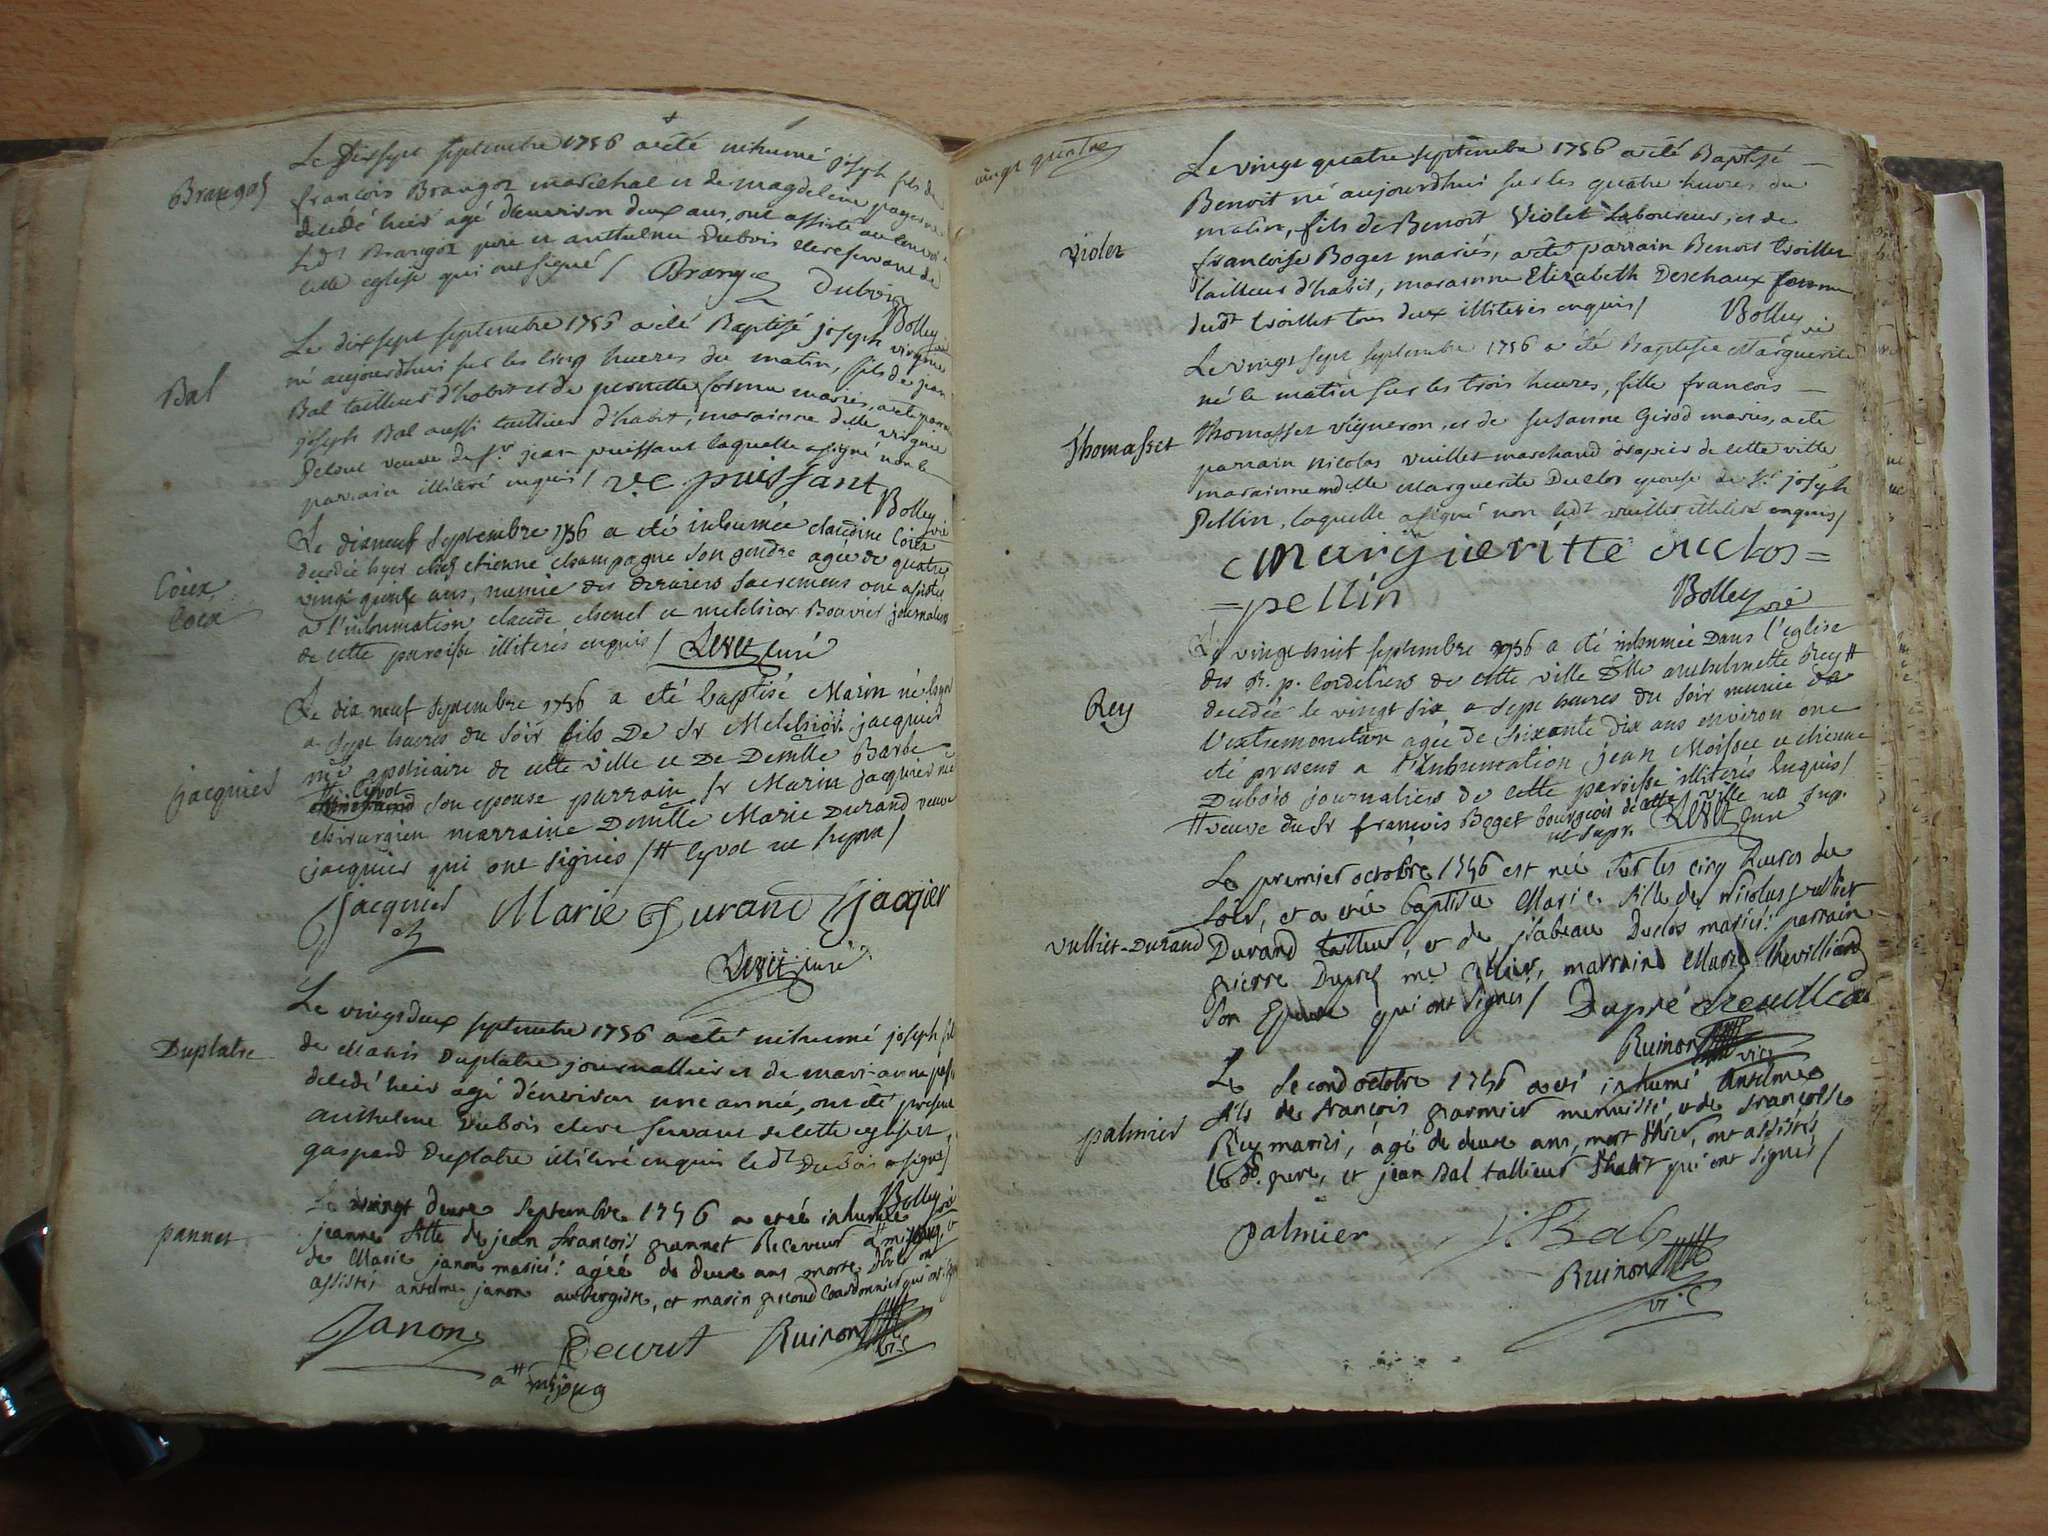 Brangoz
Le Dixsept septembre 1756 a eté inhumé joseph fils de
françois Brangoz marechal et de magdeleine
decedé hier agé d'environ deux ans, ont assisté au
led.t Brangoz pere et anthelme Dubois clerc servant de
cette eglise qui ont signé / Brangoz Dubois
Bolley vic
Bal
Le dixsept septembre 1756 a eté Baptisé joseph virginie
né aujourdhui sur les cinq heures du matin, fils de jean
Bal tailleur d'habit et de pernette mariés, a eté parrain
joseph Bal aussi tailleur d'habit, marainne d.lle virginie
veuve de s.r jean puissant laquelle a signé non le
parrain illiteré enquis / ve puissant
Bolley vic
Coiex
Coex
Le dixneuf septembre 1756 a eté inhumée claudine Coiex
decedée hyer chez etienne champagne son gendre agée de quatre
vingt quinse ans, munie des derniers sacremens ont assisté
a l'inhumation claude chenel et melchior Bouvier journaliers
de cette paroisse illiterés enquis / Revet curé
jacquier
Le dix neuf septembre 1756 a eté baptisé Marin né hyer
a sept heures du soir fils De Sr Melchior jacquier
me apoticaire de cette ville et De Demlle Barbe
cyvot
son epouse parrain Sr Marin jacquier me
chirurgien marraine Demlle Marie Durand veuve
jacquier qui ont signés / # cyvot ut supra /
jacquier Marie Durand jaqier
Revet curé
Duplatre
Le vingtdeux septembre 1756 a eté inhumé joseph fils
de Maris Duplatre journallier et de marianne
decedé hier agé d'environ une année, ont eté present
anthelme Dubois clerc servant de cette eglise et
gaspard Duplatre illiteré enquis led.t Dubois a signé /
Bolley vic
pannet
Le vingt deux septembre 1756 a eté inhumée
jeanne fille de jean françois pannet Receveur a # mijoug et
de Marie janon mariés: agée de deux ans morte d'hier ont
assistés antelme janon aubergiste, et marin recoud Cordonnier qui ont signé
Janon Recout Ruinon vic
a # mijoug
vingt quatre
Violet
Le vingt quatre septembre 1756 a eté Baptisé
Benoit né aujourdhui sur les quatre heures du
matin, fils de Benoit Violet Laboureur, et de
françoise Boget mariés, a eté parrain Benoit troillet
tailleur d'habit, marainne Elizabeth Deschaux femme
dud.t troillet tous deux illiterés enquis /
Bolley vic
Thomasset
Le vingt sept septembre 1756 a été Baptisée Marguerite
née le matin sur les trois heures, fille françois
thomasset vigneron, et de susanne Girod mariés, a eté
parrain nicolas vuillet marchand drapier de cette ville
marainne mdelle Marguerite Duclos epouse de s.r joseph
Pellin, laquelle a signé non led.t vuillet illiteré enquis /
Margueritte duclos =
= pellin
Bolley vic
Rey
Le vingt huit septembre 1756 a eté inhumée Dans l'eglise
des R. p. Cordeliers de cette ville Dlle anthelmette Rey #
decedée le vingt six a sept heures du soir munie de
l'extremonction agée de soixante dix ans environ ont
eté presens a l'inhumation jean Moissee et etienne
Dubois journaliers de cette paroisse illiterés Enquis /
# veuve du Sr françois Boget bourgeois de cette ville ut sup.
ut supr. Revet curé
vulliet-Durand
Le premier octobre 1756 est née sur les cinq heures du
soir, et a eté baptisée Marie fille de Nicolas vulliet
Durand tailleur, et de jsabeau Duclos mariés: parrain
pierre Dupré me sellier, marraine Marie thevilliard
son Epouse qui ont signés / Dupré
Ruinon vic
palmier
Le second octobre 1756 a eté inhumé Antelme
fils de françois parmier menuisié, et de françoise
Rey mariés, âgé de deux ans, mort d'hier, ont assistés
le d. pere, et jean Bal tallieur d'habit qui ont signés /
palmier j. Bal
Ruinon
vi.c